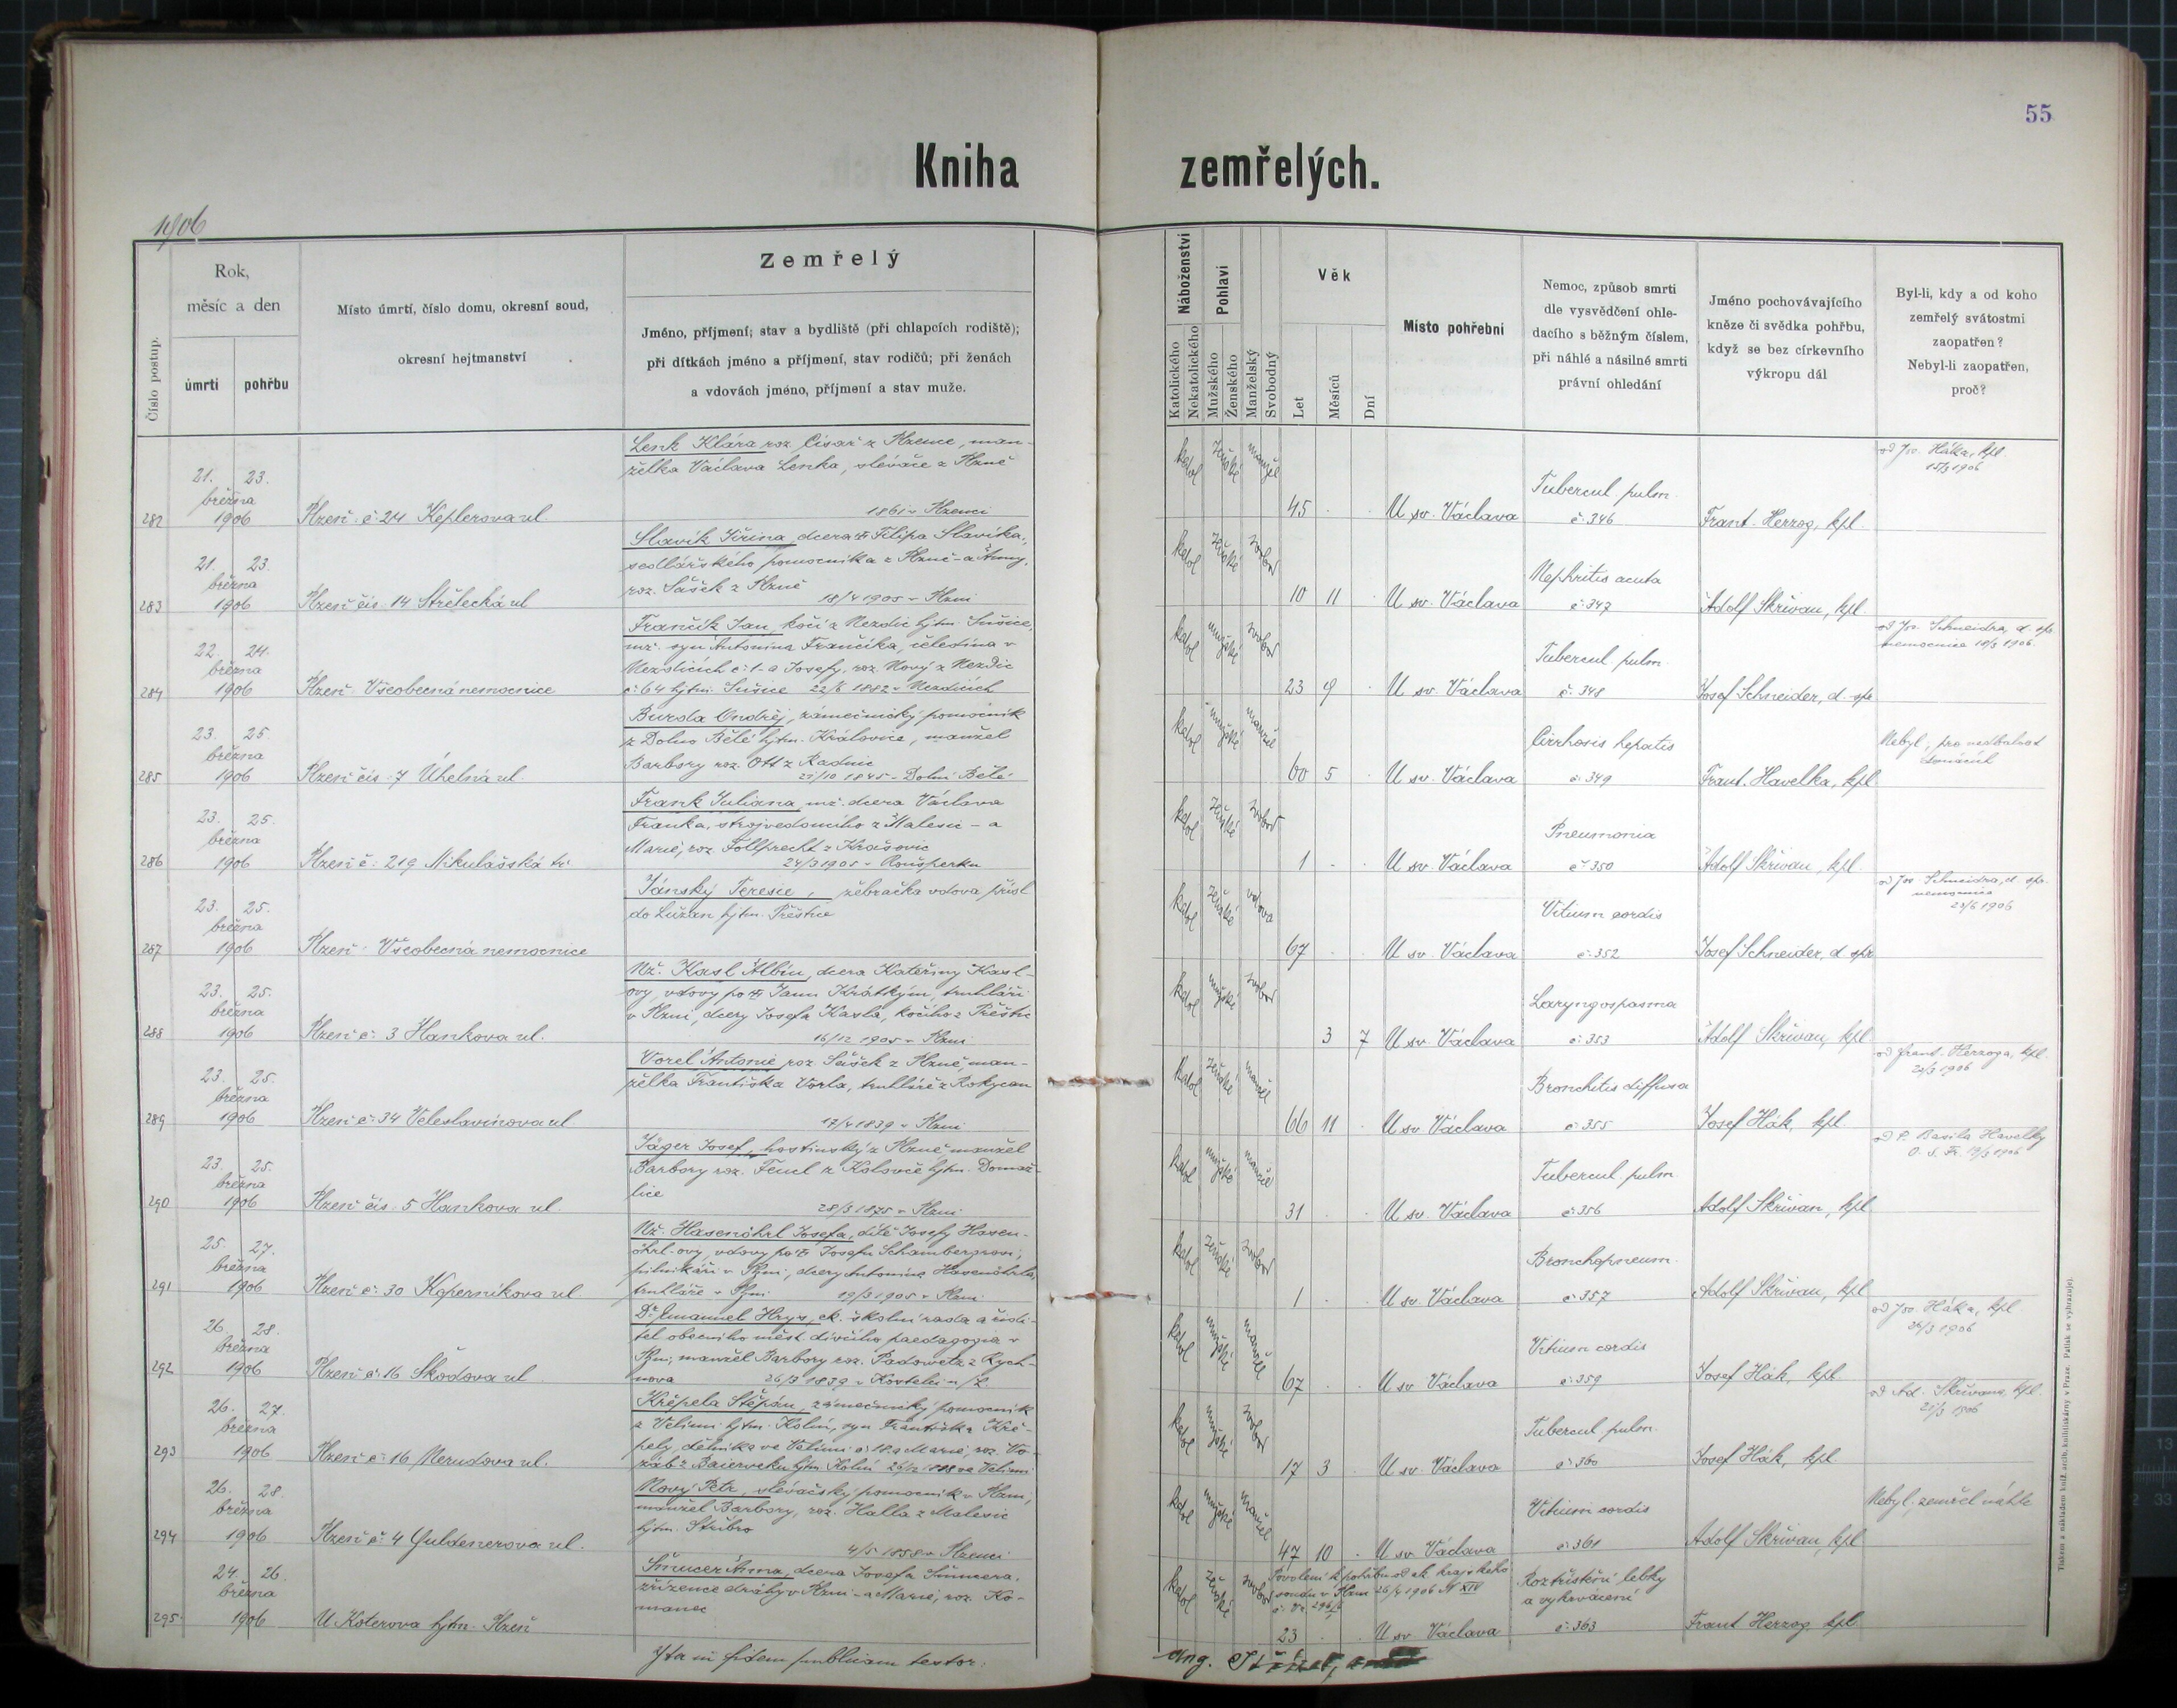 55
Kniha zemřelých.
1906
Číslo postup.
Rok,
měsíc a den
úmrtí
pohřbu
Místo úmrtí, číslo domu, okresní soud,
okresní hejtmanství
Zemřelý
Jméno, příjmení; stav a bydliště (při chlapcích rodiště);
při dítkách jméno a příjmení, stav rodičů; při ženách
a vdovách jméno, příjmení a stav muže.
Náboženství
Katolického
Nekatolického
Pohlaví
Mužského
Ženského
Manželský
Svobodný
Věk
Let
Měsíců
Dní
Místo pohřební
Nemoc, způsob smrti
dle vysvědčení ohle-
dacího s běžným číslem,
při náhlé a násilné smrti
právní ohledání
Jméno pochovávajícího
kněze či svědka pohřbu,
když se bez církevního
výkropu dál
Byl-li, kdy a od koho
zemřelý svátostmi
zaopatřen?
Nebyl-li zaopatřen,
proč?
282
21. 23.
března
1906
Plzeň č. 24 Keplerova ul.
Lenk Klára roz. Císař z Plzence, man-
želka Václava Lenka, slévače z Plzně
1861 v Plzenci
katol ženské manžel
45
U sv. Václava
Tubercul. pulm.
č. 346
Frant. Herzog, kpl.
od Jos. Háka, kpl.
15/3 1906
283
21. 23.
března
1906
Plzeň čís. 14 Střelecká ul
Slavík Jiřina, dcera Filipa Slavíka,
sedlářského pomocníka z Plzně a Anny,
roz. Sášek z Plzně
18/4 1905 v Plzni
katol ženské svobod
10 11
U sv. Václava
Nephritis acuta
č. 347
Adolf Skřivan, kpl.
284
22. 24.
března
1906
Plzeň Všeobecná nemocnice
Frančík Jan, kočí z Nezdic hjtm. Sušice,
mž. syn Antonína Frančíka, čeledína v
Nezdicích č. 1 a Josefy, roz. Nový z Nezdic
č. 64 hjtm. Sušice 22/6 1882 v Nezdicích
katol mužské svobod
23 9
U sv. Václava
Tubercul. pulm.
č. 348
Josef Schneider, d. spr
od Jos. Schneidra, d. spr.
nemocnice 18/3 1906.
285
23. 25.
března
1906
Plzeň čís. 7 Úhelná ul.
Burda Ondřej, zámečnický pomocník
z Dolno Bělé hjtm. Královice, manžel
Barbory roz. Ott z Radnic
21/10 1845 v Dolní Bělé
katol mužské manžel
60 5
U sv. Václava
Cirrhosis hepatis
č. 349
Frant. Havelka, kpl
Nebyl, pro nedbalost
domácích
286
23. 25.
března
1906
Plzeň č. 219 Mikulášská tř.
Frank Juliana, mž. dcera Václava
Franka, strojvedoucího z Malesic - a
Marie, roz. Follprecht z Krašovic
24/3 1905 v Ronšperku
katol ženské svobod
1
U sv. Václava
Pneumonia
č. 350
Adolf Skřivan, kpl.
287
23. 25.
března
1906
Plzeň Všeobecná nemocnice
Jánský Teresie, žebračka vdova přísl
do Lužan hjtm. Přeštice
katol ženské vdova
67
U sv. Václava
Vitium cordis
č. 352
Josef Schneider, d. spr
od Jos. Schneidra, d. spr.
nemocnice
288
23. 25.
března
1906
Plzeň č. 3 Hankova ul.
Nž. Kasl Albin, dcera Kateřiny Kasl-
ovy, vdovy po Janu Krátkým, truhláři
v Plzni, dcery Josefa Kasla, kočího z Přeštic
16/12 1905 v Plzni
katol mužské svobod
3 7
U sv. Václava
Laryngospasma
č. 353
Adolf Skřivan, kpl.
289
23. 25.
března
1906
Plzeň č. 34 Veleslavínova ul
Vorel Antonie roz. Sášek z Plzně, man-
želka Františka Vorla, truhláře z Rokycan
17/4 1839 v Plzni
katol ženské manžel
66 11
U sv. Václava
Bronchitis diffusa
č. 355
Josef Hák, kpl.
od Frant. Herzoga, kpl.
290
23. 25.
března
1906
Plzeň čís. 5 Hankova ul.
Jäger Josef, hostinský z Plzně manžel
Barbory roz. Feucl z Koloveč hjtm. Domaž-
lice
28/3 1875 v Plzni
katol mužské manžel
31
U sv. Václava
Tubercul. pulm.
č. 356
Adolf Skřivan, kpl
od P. Basila Havelky
O. S. Fr. 13/3 1906
291
25. 27.
března
1906
Plzeň č. 30 Koperníkova ul
Nž. Hasenöhrl Josefa, dítě Josefy Hasen-
öhrl-ovy, vdovy po Josefu Schambergrovi,
pilníkáři v Plzni, dcery Antonína Hasenöhrla,
truhláře v Plzni 19/3 1905 v Plzni
katol ženské svobod
1
U sv. Václava
Bronchopneum.
č. 357
Adolf Skřivan, kpl
292
26. 28.
března
1906
Plzeň č. 16 Škodova ul
Dr. Emanuel Hrys, ck. školní rada a řidi-
tel obecního měst. dívčího paedagogia v
Plzni, manžel Barbory roz. Padowetz z Rych-
nova 26/3 1839 v Kostelci n/L.
katol mužské manžel
67
U sv. Václava
Vitium cordis
č. 359
Josef Hák, kpl
od Jos. Háka, kpl
24/3 1906
293
26. 27.
března
1906
Plzeň č. 16 Nerudova ul.
Křepela Štěpán, zámečnický pomocník
z Velimi hjtm. Kolín, syn Františka Kře-
pely, dělníka ve Velimi č. 18 a Marie, roz. Vo-
záb z hjtm. Kolín 26/12 1888 ve Velimi
katol mužské svobod
17 3
U sv. Václava
Tubercul. pulm.
č. 360
Josef Hák, kpl.
od Ad. Skřivana, kpl.
21/3 1906
294
26. 28.
března
1906
Plzeň č. 4 Guldenerova ul.
Nový Petr, slévačský pomocník v Plzni,
manžel Barbory, roz. Halla z Malesic
hjtm. Stříbro
4/5 1858 v Plzenci
katol mužské manžel
47 10
U sv. Václava
Vitium cordis
č. 361
Adolf Skřivan, kpl
Nebyl, zemřel náhle
295
24. 26.
března
1906
U Koterova hjtm. Plzeň
Šmucer Anna, dcera Josefa Šmucera,
zřízence dráhy v Plzni - a Marie, roz. Ko-
manec
katol ženské svobod
Povolení k pohřbu od ck. krajského
soudu v Plzni 1906
23
U sv. Václava
Roztříštění lebky
a vykrvácení
č. 363
Frant. Herzog, kpl
Ita in fidem publicam testor:
Tiskem a nákladem kníž. arcib. knihtiskárny v Praze. Patisk se vyhrazuje.